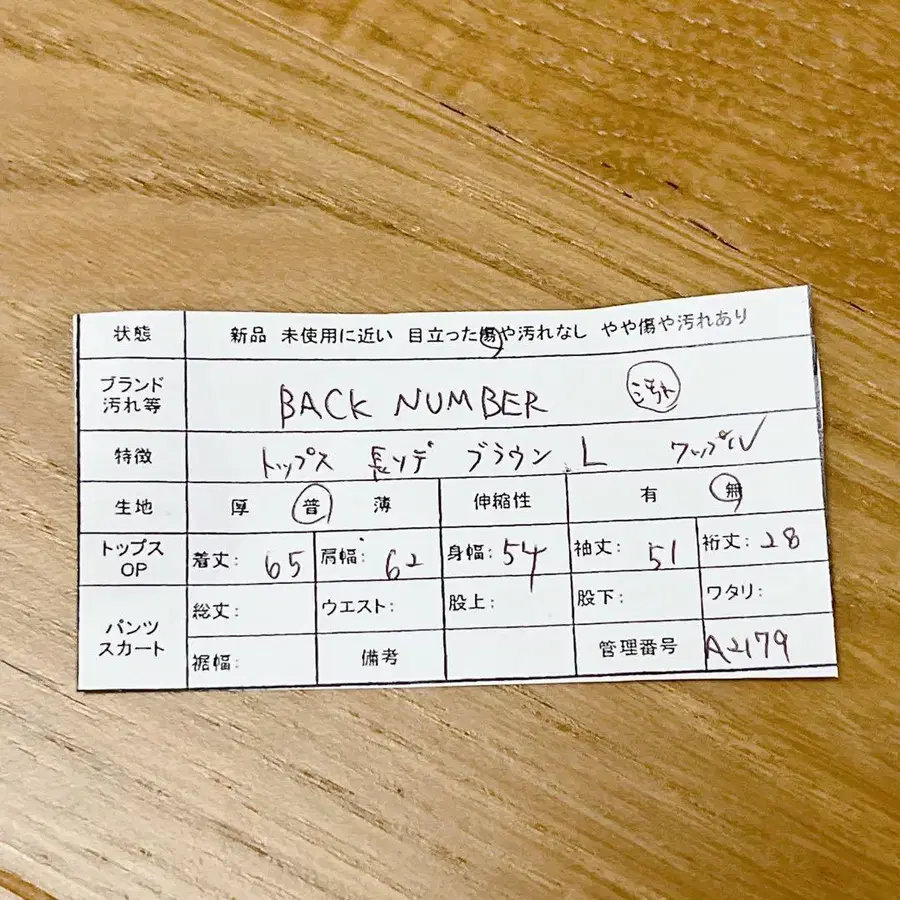 状態 新品 未使用に近い 目立った傷や汚れなし やや傷や汚れあり
ブランド
汚れ等 BACK NUMBER 汚れ
特徴 トップス 長ソデ ブラウン L ワッフル
生地 厚 普 薄 伸縮性 有 無
トップス
OP 着丈: 65 肩幅: 62 身幅: 54 袖丈: 51 裄丈: 28
パンツ
スカート 総丈: ウエスト: 股上: 股下: ワタリ:
裾幅: 備考 管理番号 A2179